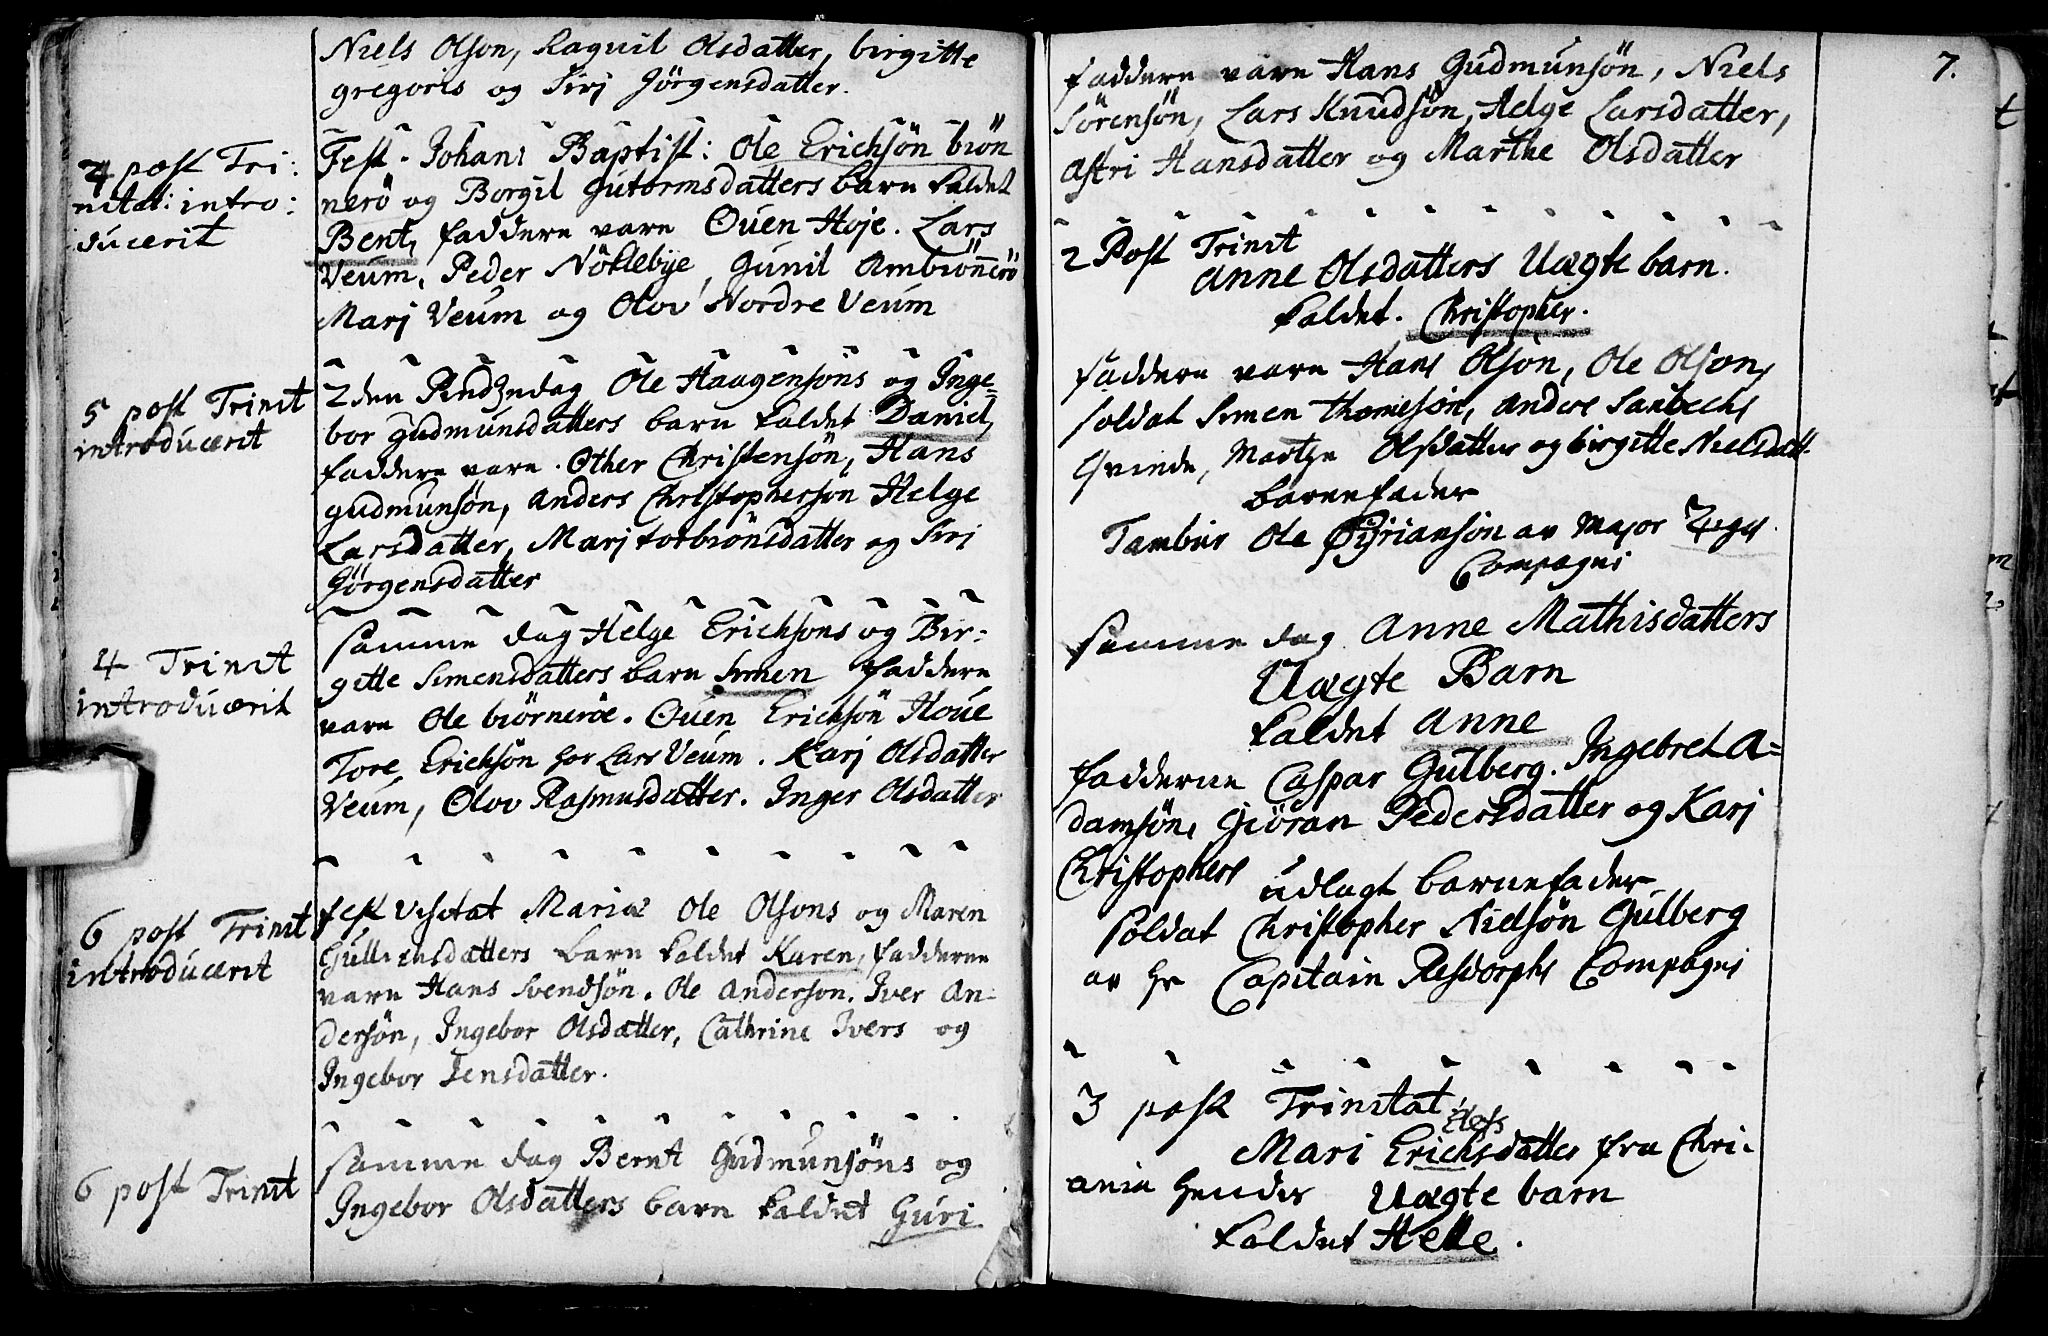 Niels Olson, Raguil Olsdatter, birgitte
gregoris og Sirj Jörgensdatter.
4 post Tri:
nitat: intro:
ducerit
Fest. Johani Baptist: Ole Erichsön biön
nerö og Borgil Gutormsdatters barn kaldet
Bent, faddere vare Ouen Hoje. Lars
Veum, Peder Nöklebye, Gunil Ambiönnerö
Marj Veum og Olov Nordre Veum
5 post Trinit
introducerit
2den Pindzedag Ole Haagensöns og Inge-
bor gudmunsdatters barn kaldet Daniel,
faddere vare. Other Christensön, Hans
gudmunsön, Anders Christophersön Helge
Larsdatter, Marj torbiönsdatter og Siri
Görgensdatter
4 Trinit
introducerit
samme dag Helge Erichsons og Bir-
gitte Simensdatters barn Simen faddere
vare Ole biörneröe. Ouen Erichsön Houe
Tore Erichsön hos Lars Veum. Karj Olsdatter
Veum, Olov Rasmusdatter. Inger Olsdatter
6 post Trinit
introducerit
fest Visitat Mariæ Ole Olsons og Maren
datters barn kaldet Karen, fadderne
vare Hans Svendsön. Ole Anderson. Iver An-
dersön, Ingebor Olsdatter, Cathrine Ivers og
Ingebor Jensdatter.
6 post Trinit
samme dag Bernt Gudmunsöns og
Ingebor Olsdatters barn kaldet Guri
7.
faddere vare Hans Gudmunsön, Niels
Sörensön, Lars Knudsön, Helge Larsdatter,
Astri Hansdatter og Marthe Olsdatter
2 Post Trinit
Anne Olsdatters Uægte barn.
kaldet. Christopher.
faddere vare Hans Olson, Ole Olson,
soldat Simen thomeson, Anders Sanbechs
Qvinde, Olsdatter og birgitte Nielsdatt.
barnefader
Tambur Ole av Major
Compagni
samme dag Anne Mathisdatters
Uægte Barn
kaldet Anne
fadderne Caspar Gulberg. Ingebret A=
damsön, Giöran Pedersdatter og Karj
Christophers udlagt barnefader
soldat Christopher Nielsön Gulberg
av hr Capitain Resdorphs Compagni
3 post Trinitat
Mari Erichsdatter fra Chri-
ania hendes Uægte barn
kaldet Helle.